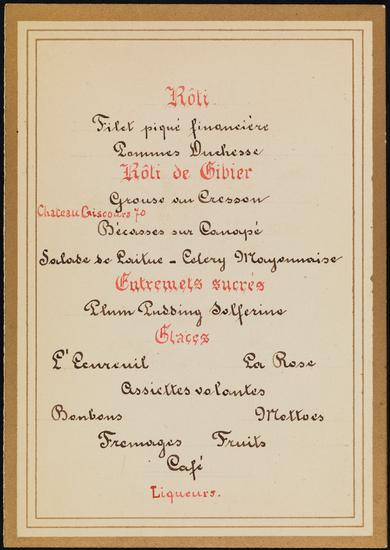 Rôti
Filet piqué financière
Pommes Duchesse
Rôti de Gibier
Grouse au Cresson
Chateau Giscours 70
Bécasses sur Canapé
Salade de Laitue - Celery Mayonnaise
Entremets sucrés
Plum Pudding Solferine
Glaces
L'Ecureuil La Rose
Assiettes volantes
Bonbons Mottoes
Fromages Fruits
Café
Liqueurs.